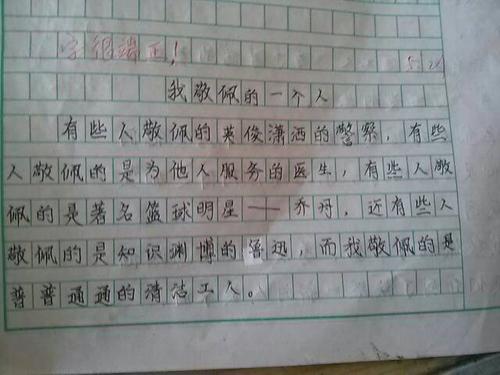 字很端正！
我敬佩的一个人
有些人敬佩的英俊潇洒的警察，有些
人敬佩的是为他人服务的医生，有些人敬
佩的是著名篮球明星——乔丹，还有些人
敬佩的是知识渊博的鲁迅，而我敬佩的是
普普通通的清洁工人。